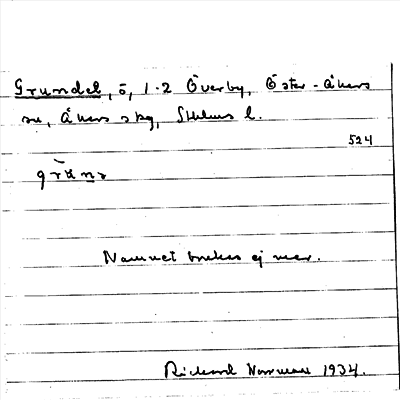 Grundel, ö, 1-2 Överby, Öster-Åkers
sn, Åkers skg, Sthlms l.
524
Namnet brukas ej mer.
Rickard Norrman 1934.